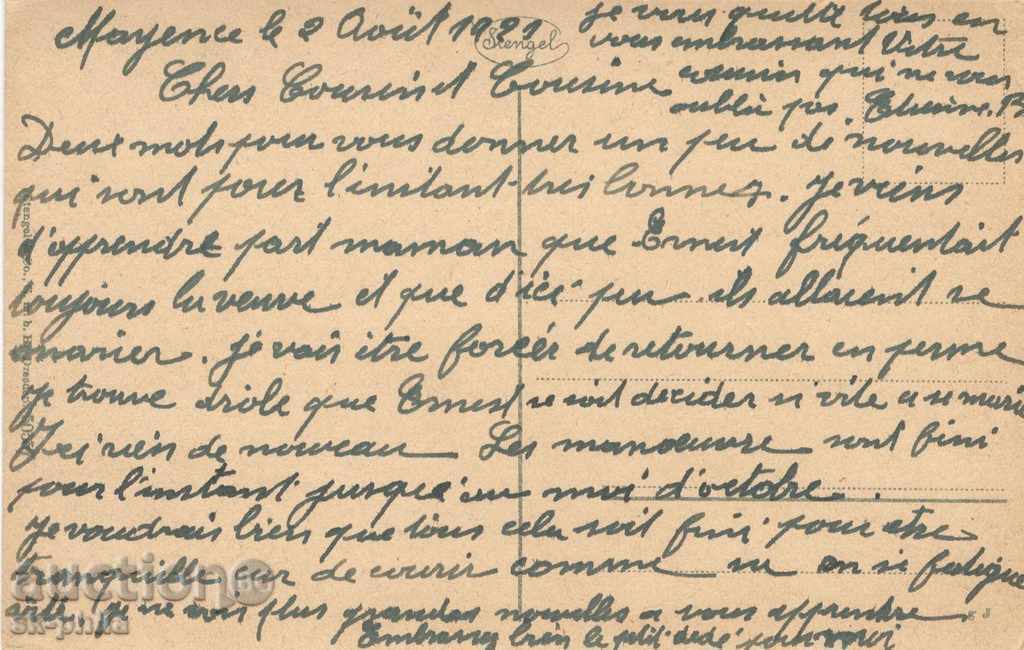 Mayence le 2 Août 1921
Stengel
Chers Cousin et Cousine
Deux mots pour vous donner un peu de nouvelles
qui sont pour l'instant tres bonnes. Je viens
d'apprendre part maman que Ernest fréquentait
toujours la veuve et que d'ici peu ils allaient se
marier. Je vais être forcér de retourner en ferme
Je trouve drole que Ernest se soit decider si vite a se marié
Ici rien de nouveau Les manœuvre sont fini
pour l'instant jusqu'au moi d'octobre.
Je voudrais bien que tous cela soit fini pour etre
tranquille car de courir comme sa on si fatigue
vite, je ne vois plus grandes nouvelles a vous apprendre
Embrassez bien le ptit dédé pour moi
je vous quitte tous en
vous embrassant Votre
cousin qui ne vous
oublie pas.
auction
sk-phila